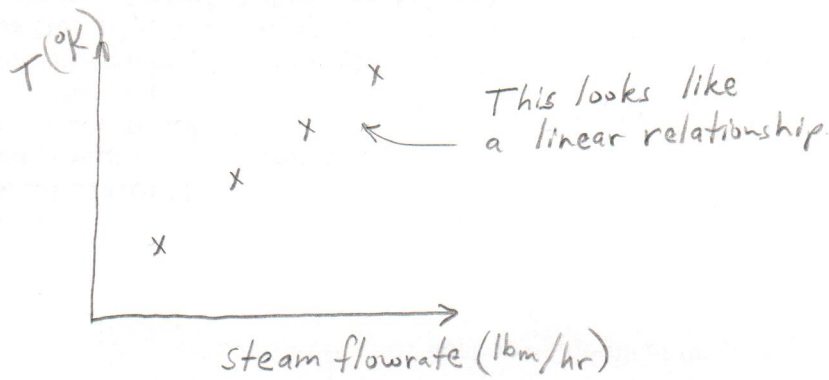 T(°K)
This looks like
a linear relationship.
steam flowrate (lbm/hr)